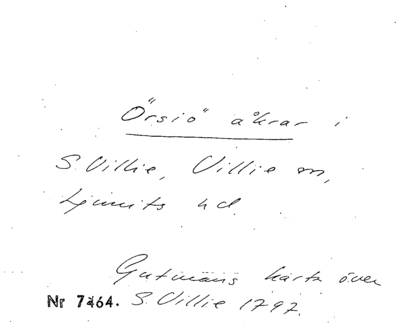 "Örsiö" åkrar i
S. Villie, Villie sn,
Ljunits hd.
Gutmans karta över
Nr 7464. S. Villie 1797.